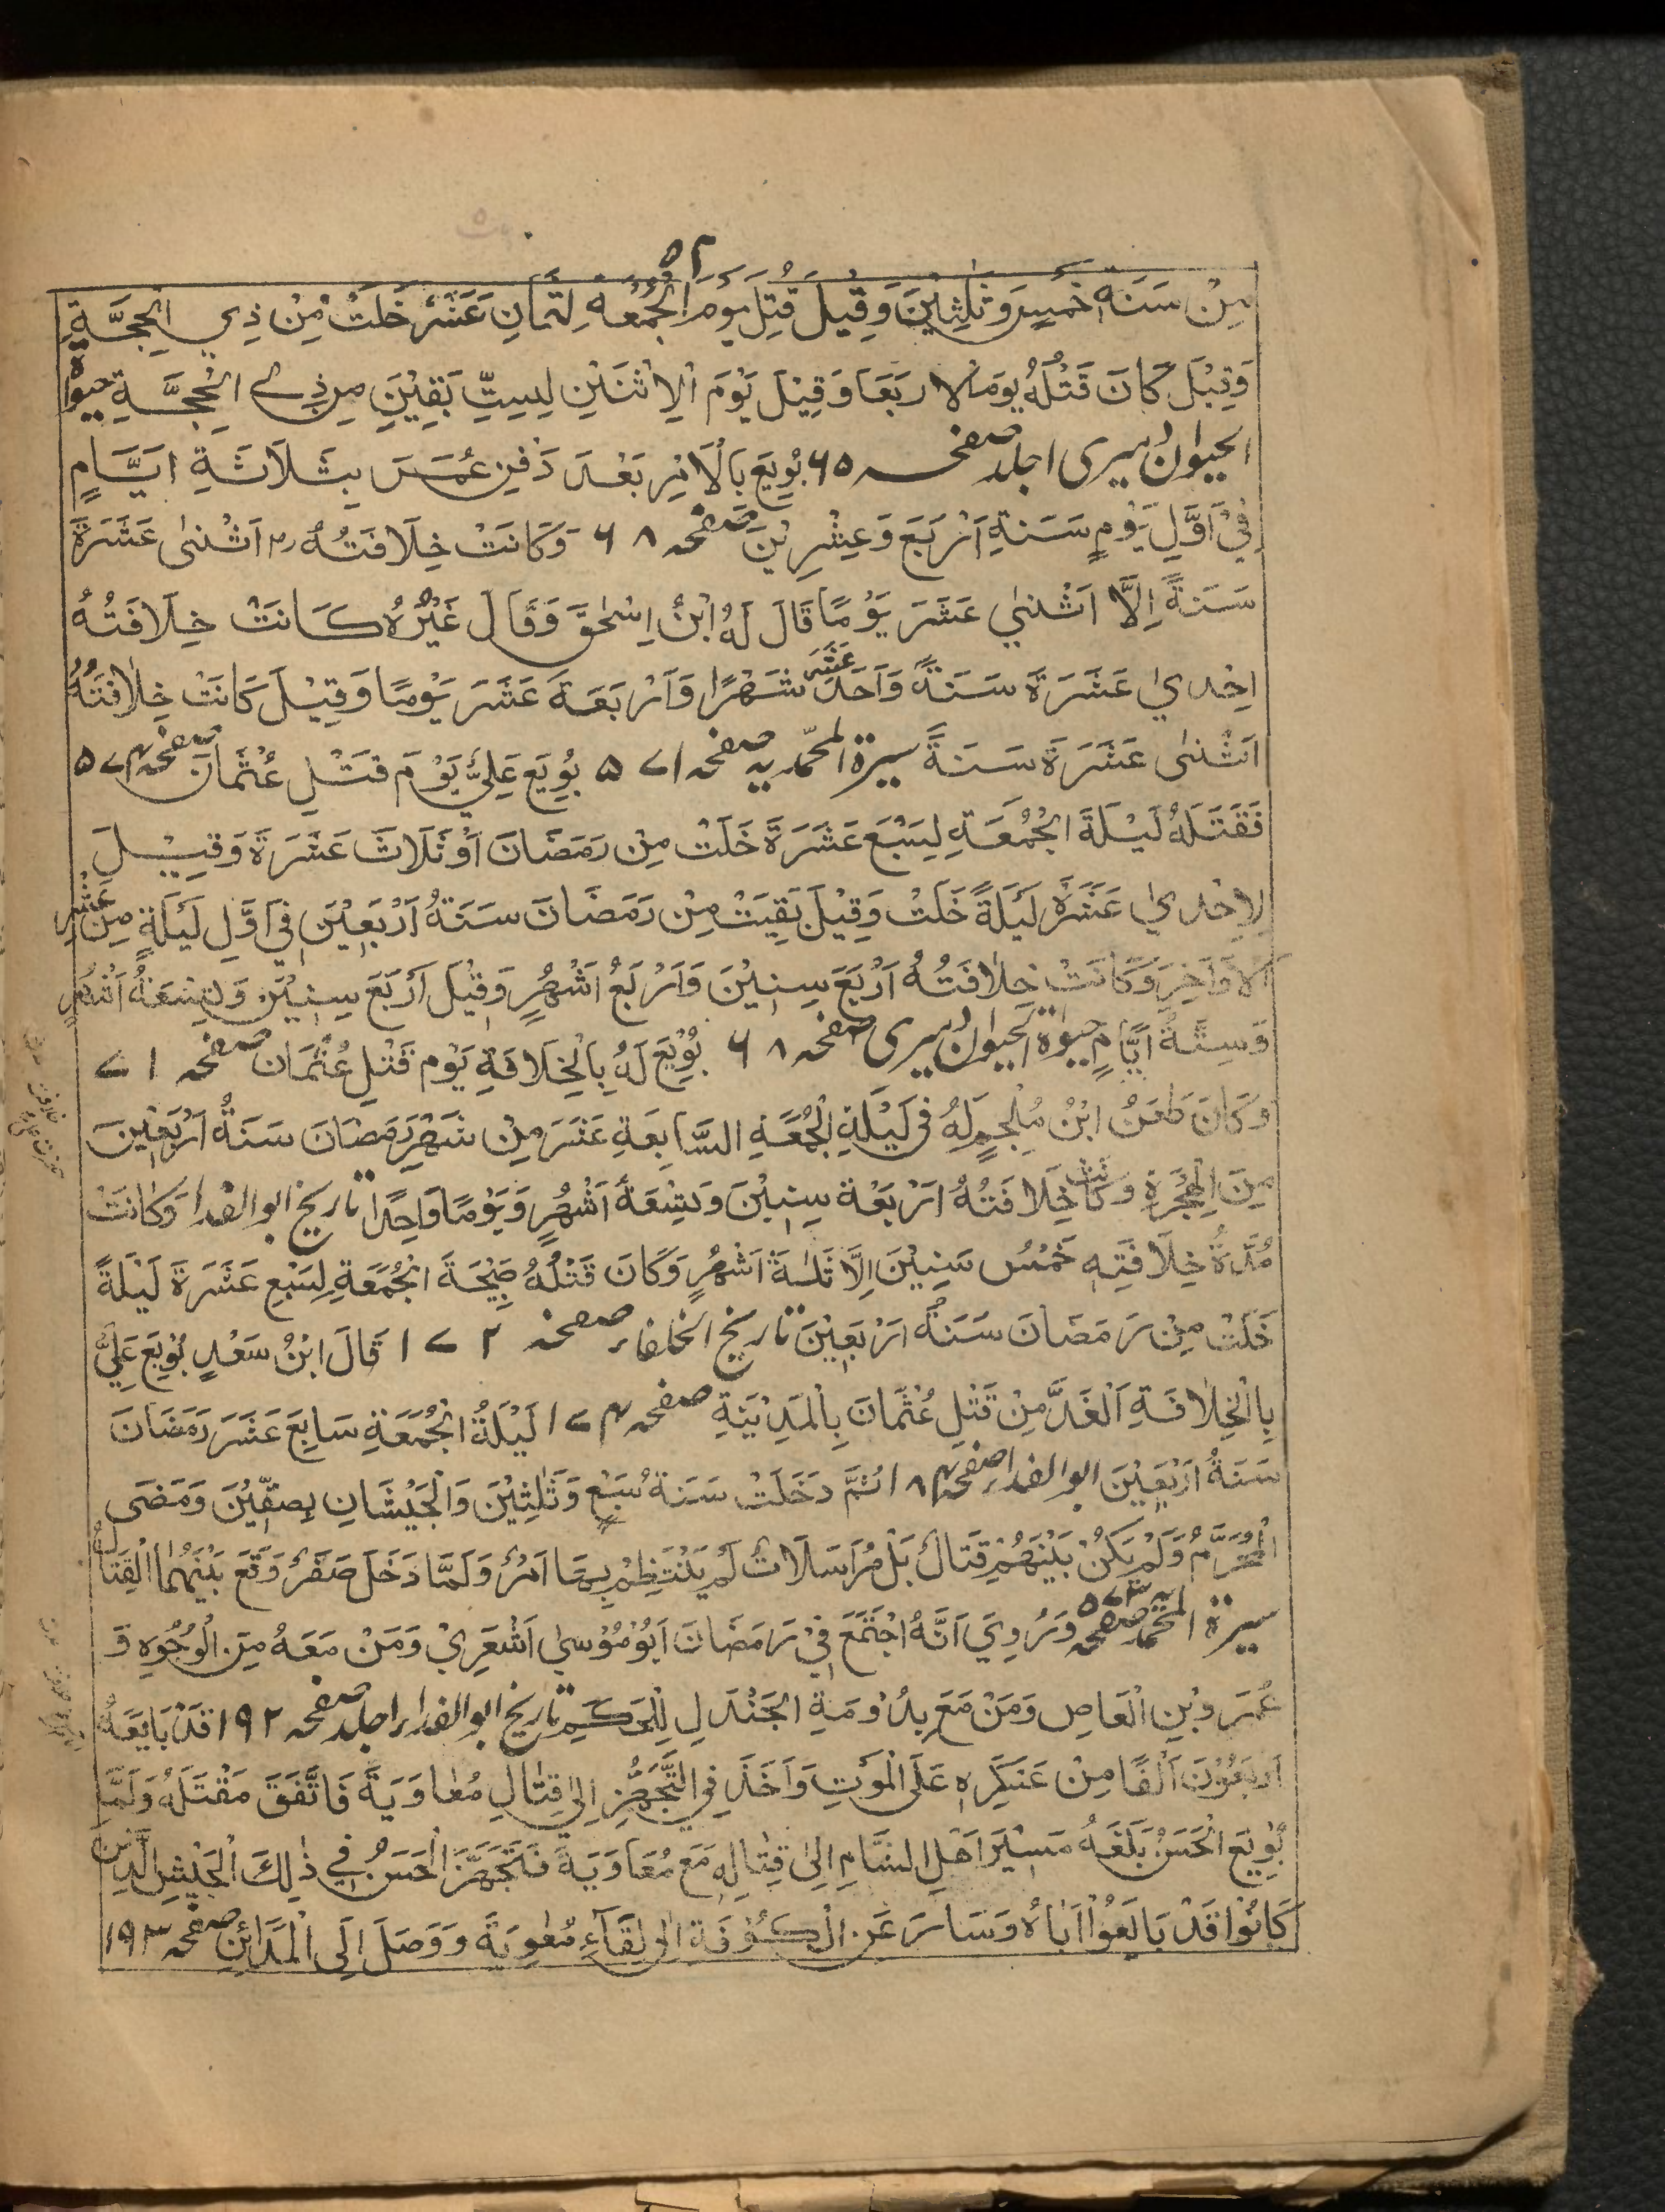 ٥٢
مِنْ سَنَةِ خَمْسٍ وَثَلٰثِيْنَ وَقِيْلَ قُتِلَ يَوْمَ الْجُمُعَةِ لِثَمَانِ عَشَرَةَ خَلَتْ مِنْ ذِي الْحِجَّةِ
وَقِيْلَ كَانَ قَتْلُهُ يَومَ الاربَعَا وَقِيْلَ يَوْمَ الْاِثْنَيْنِ لِسِتٍّ بَقِيْنَ مِن ذِي الْحِجَّةِ حيوة
الحيوان دميرى ا جلد صفحہ ٦٥ بُوِيعَ بِالْاَمْرِ بَعْدَ دَفْنِ عُمَرَ بِثَلَاثَةِ ايَّامٍ
فِيْ اَوَّلِ يَوْمٍ سَنَةِ اَرْبَعَ وَعِشْرِيْنَ صفحہ ٦٨ وَكَانَتْ خِلَافَتُهُ رض اثْنٰى عَشَرَةَ
سَنَةً اِلَّا اثْنٰي عَشَرَ يَوْمًا قَالَ لَهُ ابْنُ اِسْحٰقَ وَقَالَ غَيْرُهُ كَانَتْ خِلَافَتُهُ
اِحْدىٰ عَشَرَةَ سَنَةً وَاَحَدَ عَشَرَ شَهْرًا وَاَرْبَعَةَ عَشَرَ يَوْمًا وَقِيْلَ كَانَتْ خِلَافَتُهُ
اثْنٰى عَشَرَةَ سَنَةً سيرة المحمّديہ صفحہ ٥٧١ بُوِيَعَ عَلِيٌّ يَوْمَ قَتْلِ عُثْمَانَ صفحہ ٥٧٤
فَقَتَلَهُ لَيْلَةَ الْجُمُعَةِ لِسَبْعَ عَشَرَةَ خَلَتْ مِنْ رَمَضَانَ اَوْ ثَلَاثَ عَشَرَةَ وَقِيْلَ
لِاِحْدىٰ عَشَرَةَ لَيْلَةً خَلَتْ وَقِيْلَ بَقِيَتْ مِنْ رَمَضَانَ سَنَةُ اَرْبَعِيْنَ فِي اَوَّلِ لَيْلَةٍ مِنْ عَشْرِ
اَلاَوَاخِرَ وَكَانَتْ خِلَافَتُهُ اَرْبَعَ سِنِيْنَ وَاَرْبَعُ اَشْهُرٍ وَقِيْلَ اَرْبَعَ سِنِيْنَ وَتِسْعَةُ اَشْهُرٍ
وَسِتَّةُ ايَّامٍ حيوة الحيوان دميرى صفحہ ٦٨ بُوِيْعَ لَهُ بِالْخِلَافَةِ يَوْمَ قَتْلِ عُثْمَانَ صفحہ ٧١
وَكَانَ طَعَنُ ابْنُ مُلْجِمٍ لَهُ فِي لَيْلَةِ الْجُمُعَةِ السَّابِعَةِ عَشَرَ مِنْ شَهْرِ رَمَضَانَ سَنَةُ اَرْبَعِيْنَ
مِنَ الْهِجْرَةِ وَكَانَتْ خِلَافَتُهُ اَرْبَعَةَ سِنِيْنَ وَتِسْعَةَ اَشْهُرٍ وَيَوْمًا وَاحِدًا تاريخ ابوالفدا وَكَانَتْ
مُدَّةُ خِلَافَتِهٖ خَمْسُ سَنِيْنَ اِلَّا ثَلٰثَةَ اَشْهُرٍ وَكَانَ قَتْلُهُ صَبِيْحَةَ الْجُمُعَةِ لِسَبْعِ عَشَرَةَ لَيْلَةً
خَلَتْ مِنْ رَمَضَانَ سَنَةُ اَرْبَعِيْنَ تاريخ الخلفاء صفحہ ١٧٢ قَالَ ابْنُ سَعْدٍ بُوِيَعَ عَلِيٌّ
بِالْخِلَافَةِ اَلْغَدَّ مِنْ قَتْلِ عُثْمَانَ بِالْمَدِيْنَةِ صفحہ ١٧٤ لَيْلَةُ الْجُمُعَةِ سَابِعَ عَشَرَ رَمَضَانَ
سَنَةُ اَرْبَعِيْنَ ابوالفدا صفحہ ١٨٤ ثُمَّ دَخَلَتْ سَنَةُ سَبْعٍ وَثَلٰثِيْنَ وَالْجَيْشَانِ بِصِفِّيْنَ وَمَضَى
الْمُحَرَّمُ وَلَمْ يَكُنْ بَيْنَهُمْ قِتَالٌ بَلْ مُرَاسَلَاتٌ لَمْ يَنْتَظِمْ بِهَا اَمْرٌ وَلَمَّا دَخَلَ صَفَرٌ وَقَعَ بَيْنَهُمَا الْقِتَالُ
سيرة المحمّديہ صفحہ ٥٧٣ وَرُوِيَ اَنَّهُ اجْتَمَعَ فِيْ رَمَضَانَ اَبُوْمُوْسىٰ اَشْعَرِيْ وَمَنْ مَعَهُ مِنَ الْوُجُوهِ وَ
عُمَرَ وبْنِ الْعَاصِ وَمَنْ مَعَ بِدُوْمَةِ الْجَنْدَلِ لِلْحَكَمِ تاريخ ابوالفدا ا جلد صفحہ ١٩٢ قَدْ بَايَعَهُ
اَرْبَعُوْنَ اَلْفًا مِنْ عَسْكَرِهٖ عَلَى الْمَوْتِ وَاَخَذَ فِي التَّجَهُّزِ اِلىٰ قِتَالِ مُعَاوَيَةَ فَاتَّفَقَ مَقْتَلَهُ وَلَمَّا
بُوِيْعَ الْحَسَنُ بَلَغَهُ مَسِيْرَ اَهْلِ الشَّامِ اِلىٰ قِتَالِهٖ مَعَ مُعَاوَيَةَ فَتَجَهَّزَ الْحَسَنُ فِي ذٰلِكَ الْجَيْشِ الَّذِيْنَ
كَانُوْا قَدْ بَايَعُوْا اَبَاهُ وَسَارَ عَنِ الْكُوْفَةِ اِلىٰ لِقَآءِ مُعٰوِيَةَ وَوَصَلَ اِلَى الْمَدَائِنِ صفحہ ١٩٣